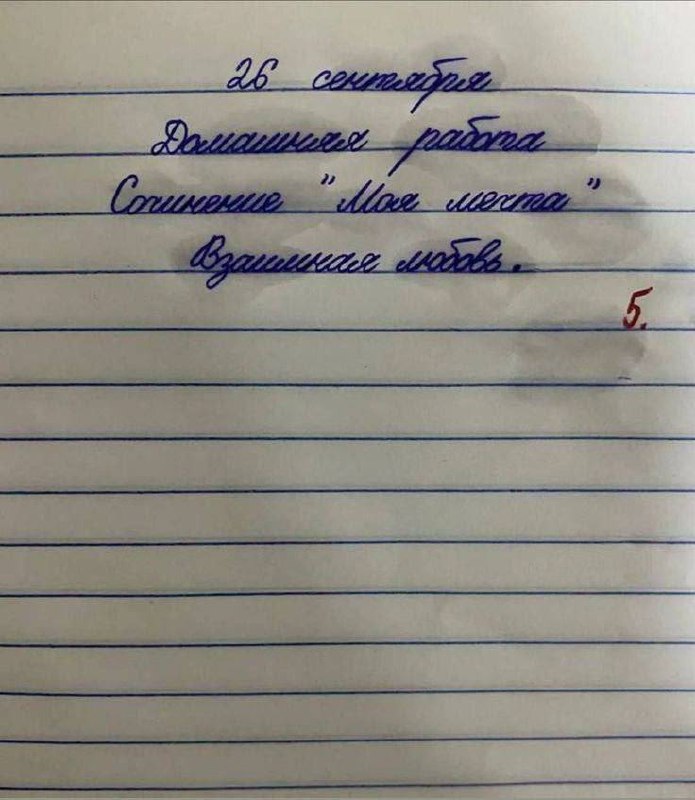 26 сентября
Домашняя работа
Сочинение "Моя мечта"
Взаимная любовь.
5.